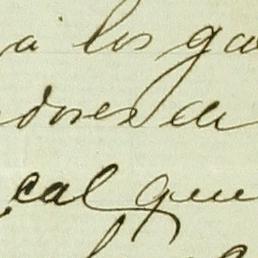 á los ga
dores de
cal que